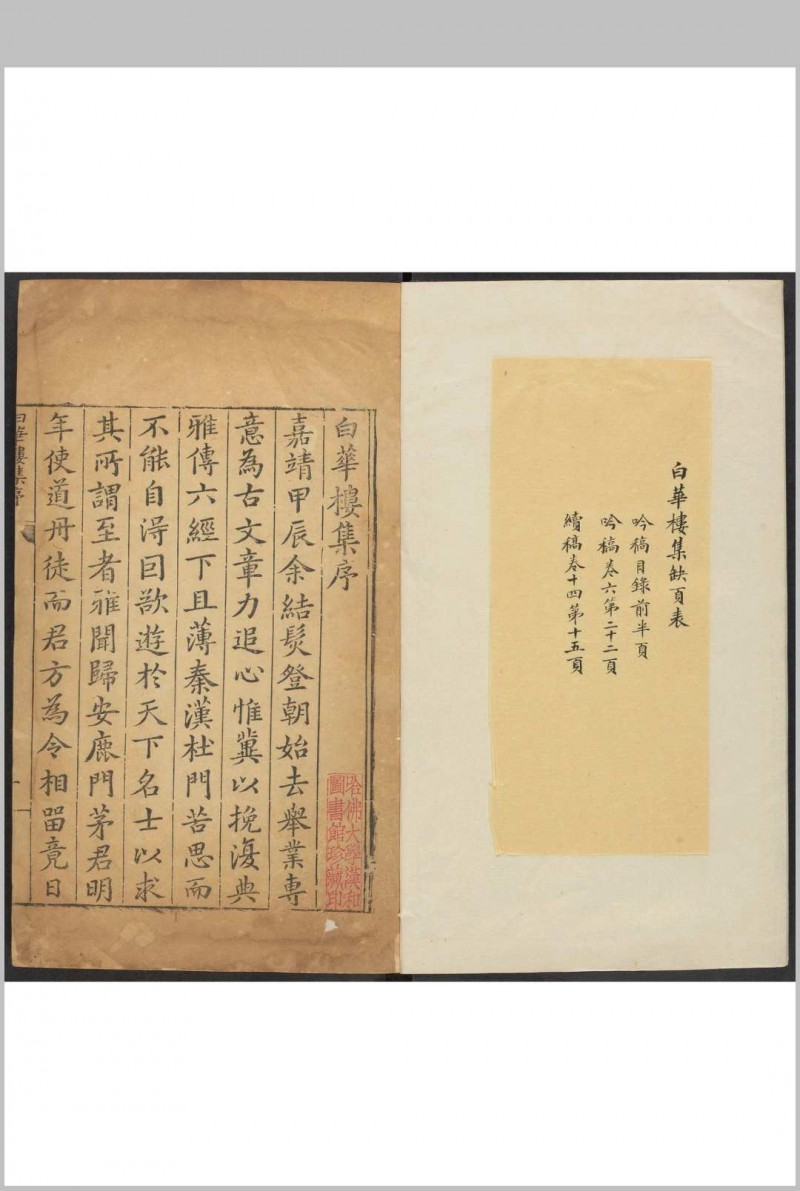 白華樓集缺頁表
吟稿目錄前半頁
吟稿卷六第二十二頁
續稿卷十四第十五頁
白華樓集序
哈佛大學漢和
圖書館珍藏印
嘉靖甲辰余結髮登朝始去舉業專
意為古文章力追心惟冀以挽復典
雅傳六經下且薄秦漢杜門苦思而
不能自淂囙欲遊扵天下名士以求
其所謂至者雅聞歸安鹿門茅君明
年使道丹徒而君方為令相畱竟日
白華樓集序